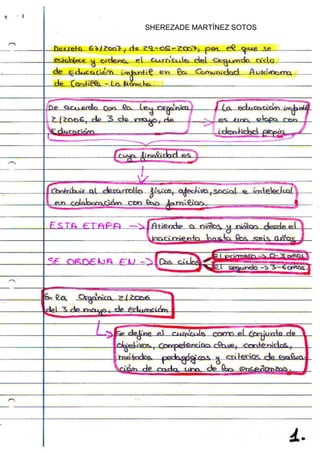 SHEREZADE MARTÍNEZ SOTOS
Decreto 67/2007, de 29-05-2007, por el que se
establece y ordena el currículo del segundo ciclo
de Educación infantil en la Comunidad Autónoma
de Castilla - La Mancha.
De acuerdo con la Ley orgánica
2/2006, de 3 de mayo, de
Educación
La educación infantil
es una etapa con
identidad propia
cuya finalidad es
Contribuir al desarrollo físico, afectivo, social e intelectual
en colaboración con las familias.
ESTA ETAPA -> Atiende a niñas y niños desde el
nacimiento hasta los seis años
SE ORDENA EN -> Dos ciclos
El primero -> 0-3 años
El segundo -> 3-6 años.
En la Orgánica 2/2006
del 3 de mayo, de educación
Se define el currículo como el conjunto de
objetivos, competencias clave, contenidos,
métodos pedagógicos y criterios de evalua-
ción de cada una de las enseñanzas.
1.